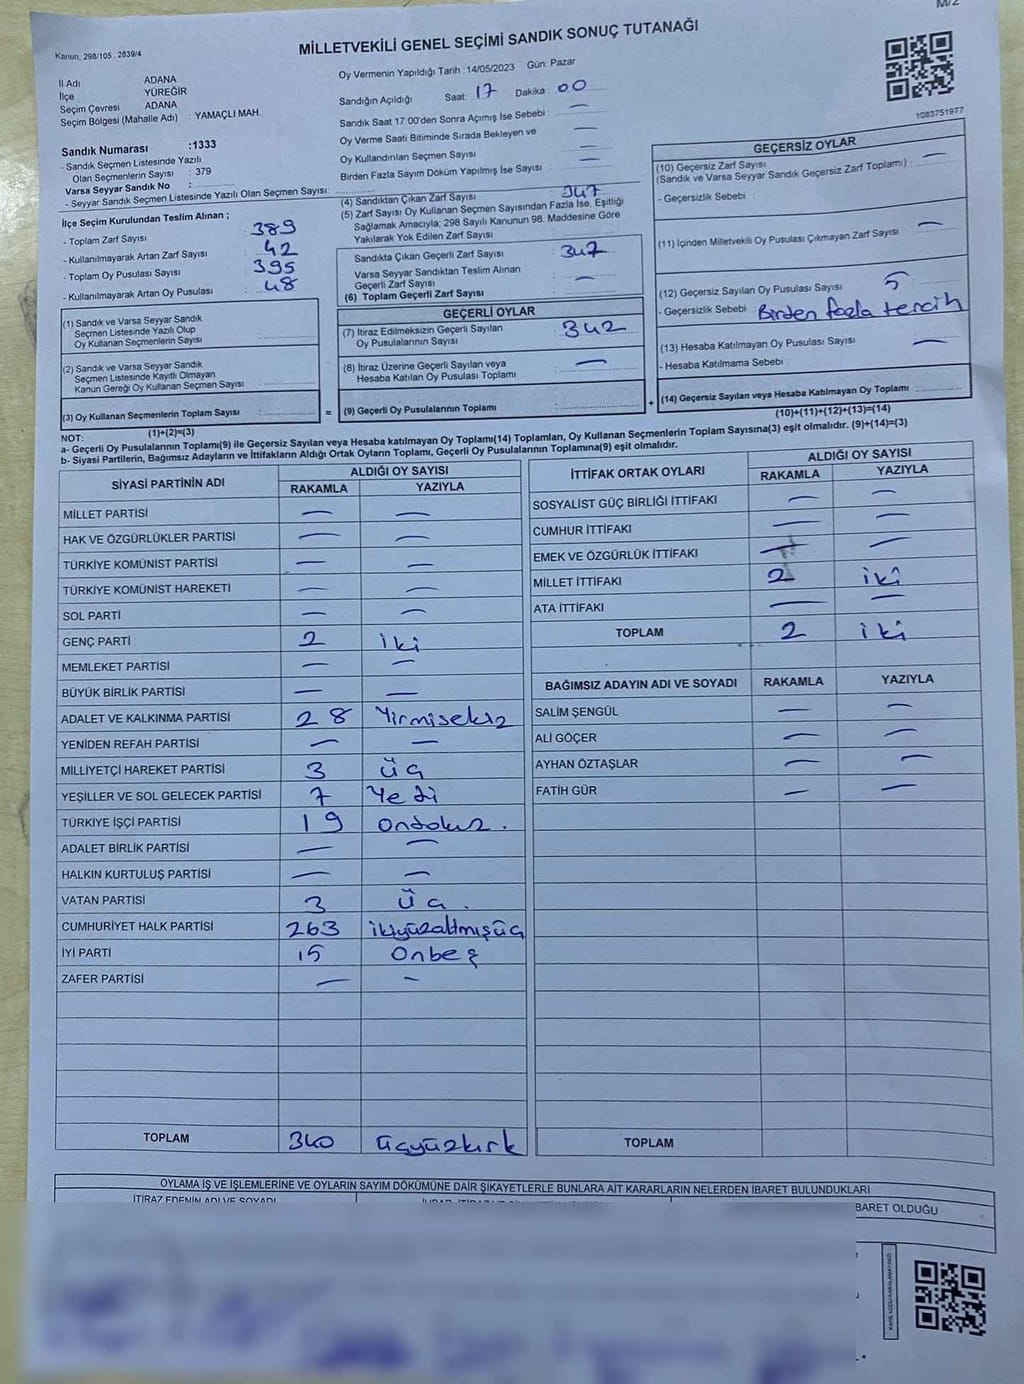 M/2
Kanun; 298/105 . 2839/4
MİLLETVEKİLİ GENEL SEÇİMİ SANDIK SONUÇ TUTANAĞI
İl Adı ADANA
İlçe YÜREĞİR
Seçim Çevresi ADANA
Seçim Bölgesi (Mahalle Adı) : YAMAÇLI MAH.
Oy Vermenin Yapıldığı Tarih : 14/05/2023 Gün: Pazar
Sandığın Açıldığı Saat: 17 Dakika: 00
Sandık Saat 17:00'den Sonra Açımış İse Sebebi : —
Oy Verme Saati Bitiminde Sırada Bekleyen ve —
Oy Kullandırılan Seçmen Sayısı —
Birden Fazla Sayım Döküm Yapılmış İse Sayısı : —
1083751977
Sandık Numarası :1333
- Sandık Seçmen Listesinde Yazılı
Olan Seçmenlerin Sayısı : 379
Varsa Seyyar Sandık No :
- Seyyar Sandık Seçmen Listesinde Yazılı Olan Seçmen Sayısı:
İlçe Seçim Kurulundan Teslim Alınan ;
- Toplam Zarf Sayısı : 389
- Kullanılmayarak Artan Zarf Sayısı : 42
- Toplam Oy Pusulası Sayısı : 395
- Kullanılmayarak Artan Oy Pusulası : 48
(1) Sandık ve Varsa Seyyar Sandık
Seçmen Listesinde Yazılı Olup
Oy Kullanan Seçmenlerin Sayısı :
(2) Sandık ve Varsa Seyyar Sandık
Seçmen Listesinde Kayıtlı Olmayan
Kanun Gereği Oy Kullanan Seçmen Sayısı :
(3) Oy Kullanan Seçmenlerin Toplam Sayısı :
(1)+(2)=(3)
(4) Sandıktan Çıkan Zarf Sayısı : 347
(5) Zarf Sayısı Oy Kullanan Seçmen Sayısından Fazla İse, Eşitliği
Sağlamak Amacıyla, 298 Sayılı Kanunun 98. Maddesine Göre
Yakılarak Yok Edilen Zarf Sayısı
Sandıkta Çıkan Geçerli Zarf Sayısı : 347
Varsa Seyyar Sandıktan Teslim Alınan
Geçerli Zarf Sayısı : —
(6) Toplam Geçerli Zarf Sayısı :
GEÇERLİ OYLAR
(7) İtiraz Edilmeksizin Geçerli Sayılan
Oy Pusulalarının Sayısı : 342
(8) İtiraz Üzerine Geçerli Sayılan veya
Hesaba Katılan Oy Pusulası Toplamı : —
= (9) Geçerli Oy Pusulalarının Toplamı :
GEÇERSİZ OYLAR
(10) Geçersiz Zarf Sayısı
(Sandık ve Varsa Seyyar Sandık Geçersiz Zarf Toplamı) : —
- Geçersizlik Sebebi :
(11) İçinden Milletvekili Oy Pusulası Çıkmayan Zarf Sayısı : —
(12) Geçersiz Sayılan Oy Pusulası Sayısı : 5
- Geçersizlik Sebebi : Birden fazla tercih
(13) Hesaba Katılmayan Oy Pusulası Sayısı : —
- Hesaba Katılmama Sebebi :
+ (14) Geçersiz Sayılan veya Hesaba Katılmayan Oy Toplamı :
(10)+(11)+(12)+(13)=(14)
NOT:
a- Geçerli Oy Pusulalarının Toplamı(9) ile Geçersiz Sayılan veya Hesaba katılmayan Oy Toplamı(14) Toplamları, Oy Kullanan Seçmenlerin Toplam Sayısına(3) eşit olmalıdır. (9)+(14)=(3)
b- Siyasi Partilerin, Bağımsız Adayların ve İttifakların Aldığı Ortak Oyların Toplamı, Geçerli Oy Pusulalarının Toplamına(9) eşit olmalıdır.
SİYASİ PARTİNİN ADI ALDIĞI OY SAYISI
RAKAMLA YAZIYLA
MİLLET PARTİSİ — —
HAK VE ÖZGÜRLÜKLER PARTİSİ — —
TÜRKİYE KOMÜNİST PARTİSİ — —
TÜRKİYE KOMÜNİST HAREKETİ — —
SOL PARTİ — —
GENÇ PARTİ 2 iki
MEMLEKET PARTİSİ — —
BÜYÜK BİRLİK PARTİSİ — —
ADALET VE KALKINMA PARTİSİ 28 Yirmisekiz
YENİDEN REFAH PARTİSİ — —
MİLLİYETÇİ HAREKET PARTİSİ 3 üç
YEŞİLLER VE SOL GELECEK PARTİSİ 7 Yedi
TÜRKİYE İŞÇİ PARTİSİ 19 ondokuz.
ADALET BİRLİK PARTİSİ — —
HALKIN KURTULUŞ PARTİSİ — —
VATAN PARTİSİ 3 üç.
CUMHURİYET HALK PARTİSİ 263 ikiyüzaltmışüç
İYİ PARTİ 15 Onbeş
ZAFER PARTİSİ — —
TOPLAM 340 üçyüzkırk
İTTİFAK ORTAK OYLARI ALDIĞI OY SAYISI
RAKAMLA YAZIYLA
SOSYALİST GÜÇ BİRLİĞİ İTTİFAKI — —
CUMHUR İTTİFAKI — —
EMEK VE ÖZGÜRLÜK İTTİFAKI — —
MİLLET İTTİFAKI 2 iki
ATA İTTİFAKI — —
TOPLAM 2 iki
BAĞIMSIZ ADAYIN ADI VE SOYADI RAKAMLA YAZIYLA
SALİM ŞENGÜL — —
ALİ GÖÇER — —
AYHAN ÖZTAŞLAR — —
FATİH GÜR — —
TOPLAM
OYLAMA İŞ VE İŞLEMLERİNE VE OYLARIN SAYIM DÖKÜMÜNE DAİR ŞİKAYETLERLE BUNLARA AİT KARARLARIN NELERDEN İBARET BULUNDUKLARI
İTİRAZ EDENİN ADI VE SOYADI
BARET OLDUĞU